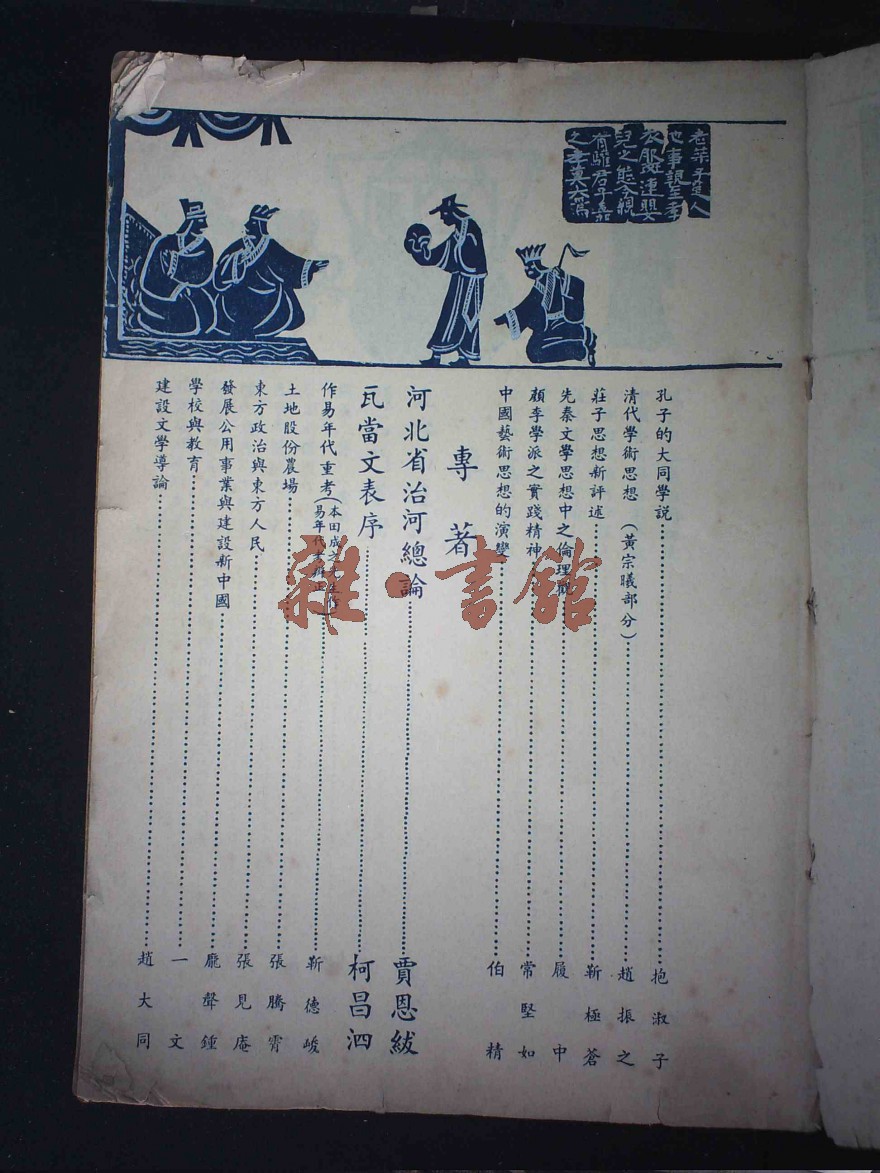 老萊子楚人
也事親至孝
衣服斑連嬰
兒之態令親
有驩君子嘉
之孝莫大焉
孔子的大同學說 抱淑子
清代學術思想(黃宗曦部分) 趙振之
莊子思想新評述 靳極蒼
先秦文學思想中之倫理觀 履中
顏李學派之實踐精神 常堅如
中國藝術思想的演變 伯精
專著
河北省治河總論 賈恩紱
瓦當文表序 柯昌泗
作易年代重考(本田成之 作易年代考辨正) 靳德峻
土地股份農場 張騰霄
東方政治與東方人民 張見庵
發展公用事業與建設新中國 龐聲鍾
學校與教育 一文
建設文學導論 趙大同
雜·書館